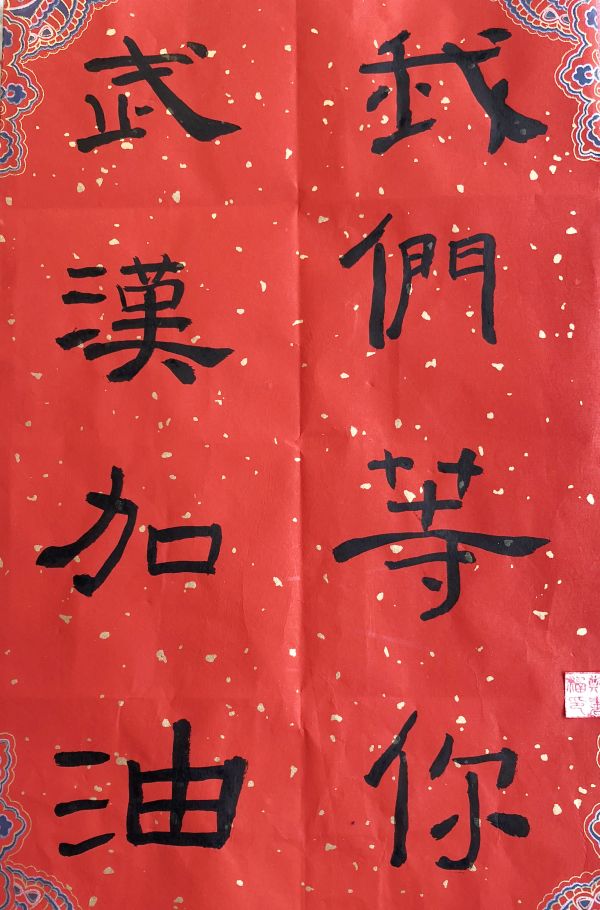 我們等你
武漢加油